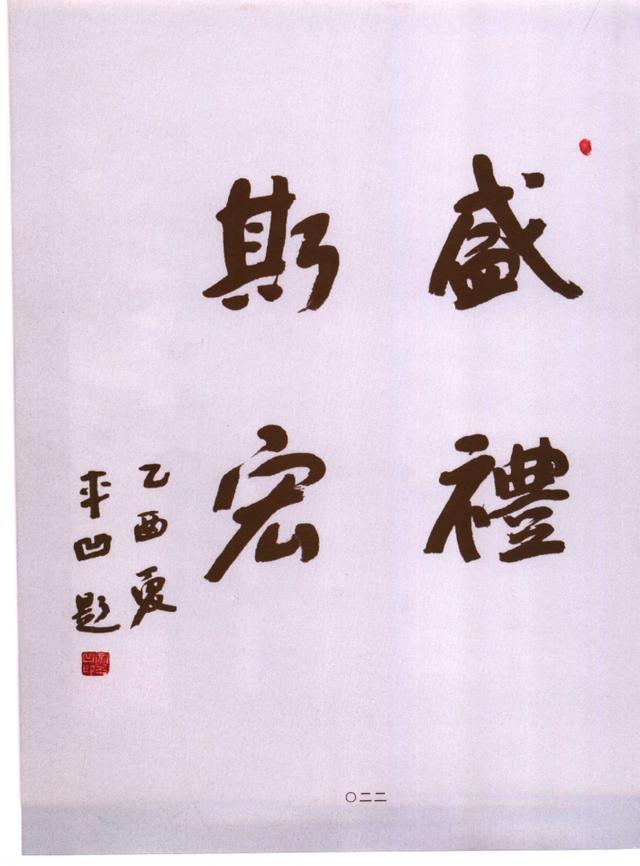 盛禮
斯宏
乙酉夏
平凹題
〇二二